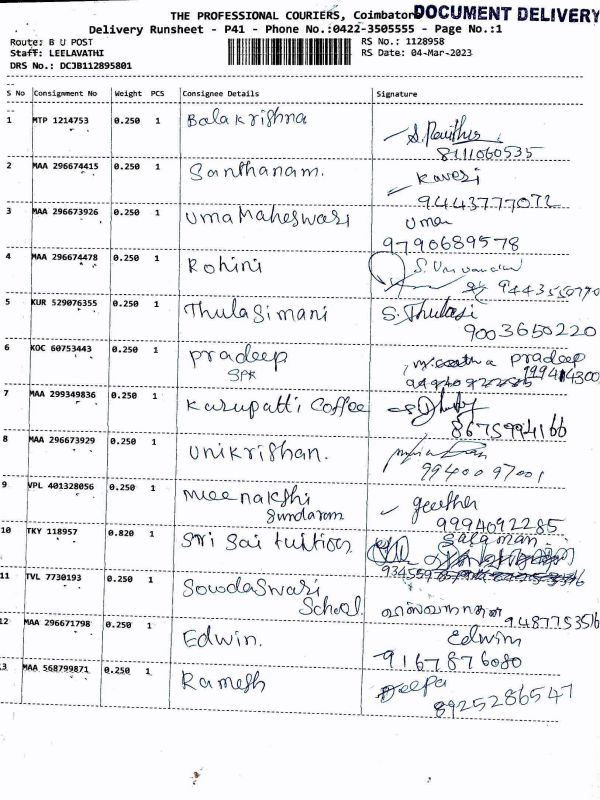 THE PROFESSIONAL COURIERS, Coimbatore DOCUMENT DELIVERY
Delivery Runsheet - P41 - Phone No.:0422-3505555 - Page No.:1
Route: B U POST RS No.: 1128958
Staff: LEELAVATHI RS Date: 04-Mar-2023
DRS No.: DCJB112895801
S No Consignment No Weight PCS Consignee Details Signature
1 MTP 1214753 0.250 1 Balakrishna
8111060535
2 MAA 296674415 0.250 1 Santhanam. Kaveri
9443777072
3 MAA 296673926 0.250 1 Uma Maheswari Uma
9790689578
4 MAA 296674478 0.250 1 Rohini
9443550770
5 KUR 529076355 0.250 1 Thulasimani S. Thulasi
9003650220
6 KOC 60753443 0.250 1 pradeep pradeep
SPK
7 MAA 299349836 0.250 1 Karupatti Coffee
8675994166
8 MAA 296673929 0.250 1 Unikrishan.
9940097001
9 VPL 401328056 0.250 1 Meenakshi geetha
Sundaram 9994092285
10 TKY 118957 0.820 1 Sri Sai tuition
11 TVL 7730193 0.250 1 SowdaSwari
School 9487753516
12 MAA 296671798 0.250 1 Edwin. Edwin
9167876080
13 MAA 568799871 0.250 1 Ramesh Deepa
8925286547